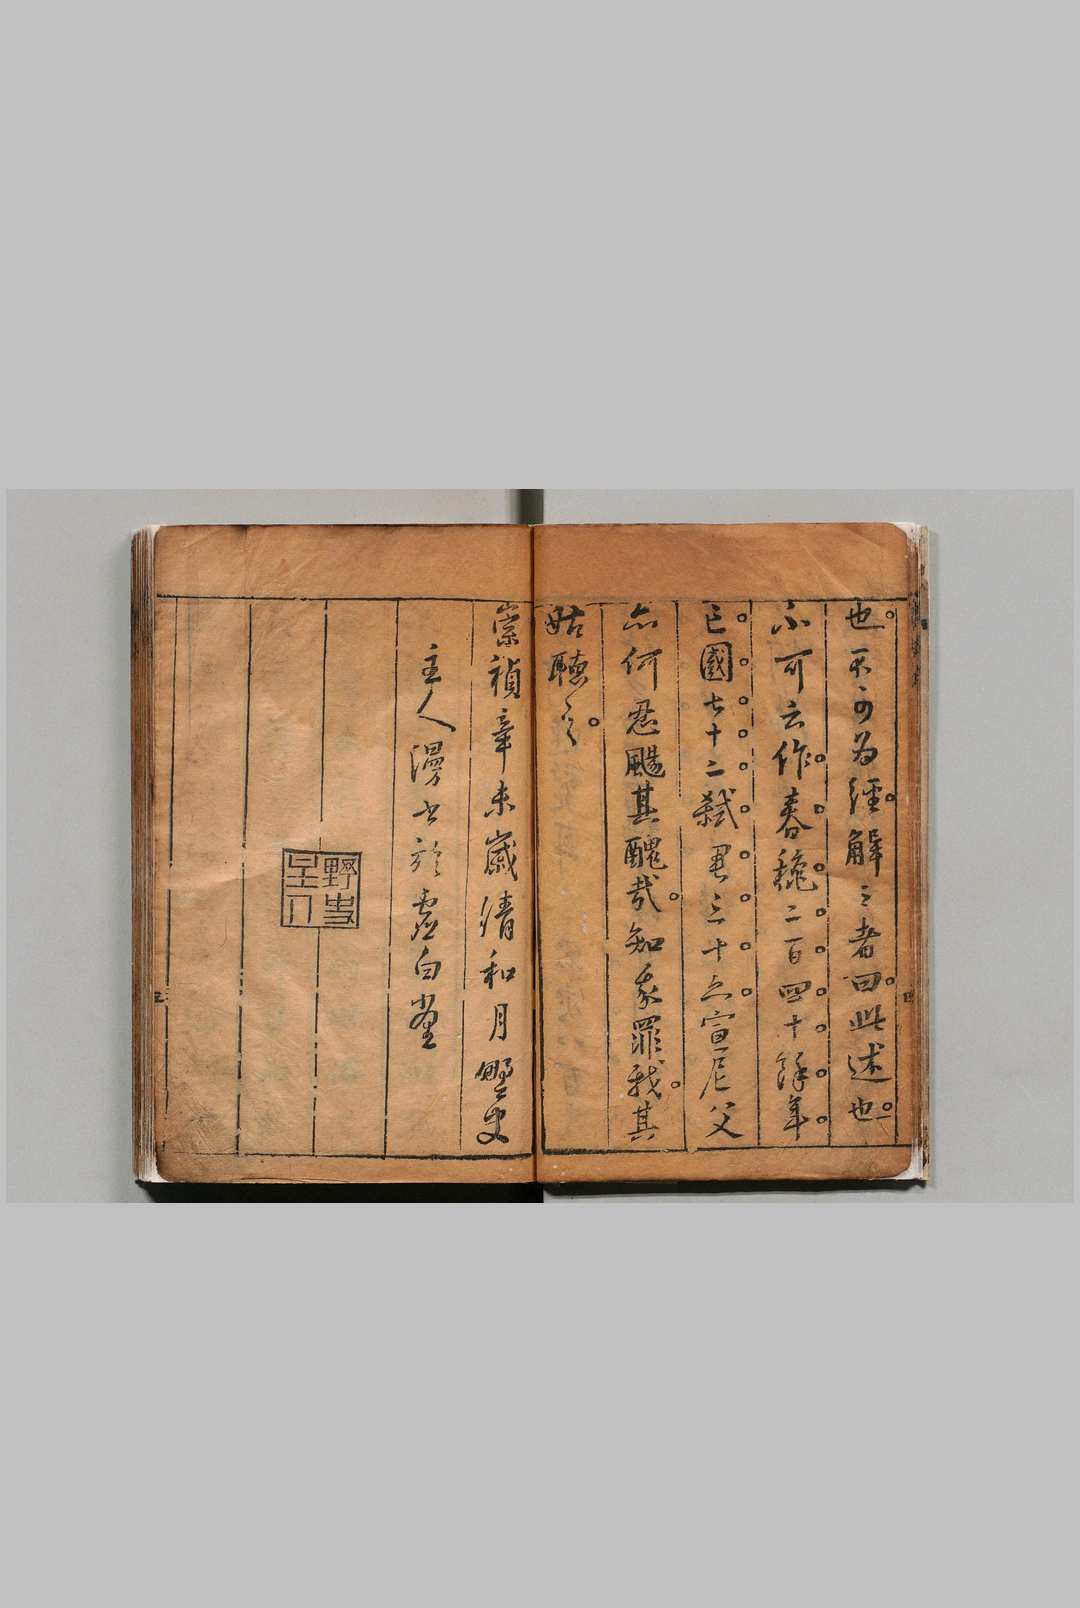 也不可為經解之者曰此述也
不可云作春穐二百四十餘年
亡國七十二弑君三十六宣尼父
亦何忍颺其醜哉知我罪我其
姑聽之
崇禎辛未歲清和月野史
主人漫書於虛白堂
野史
主人